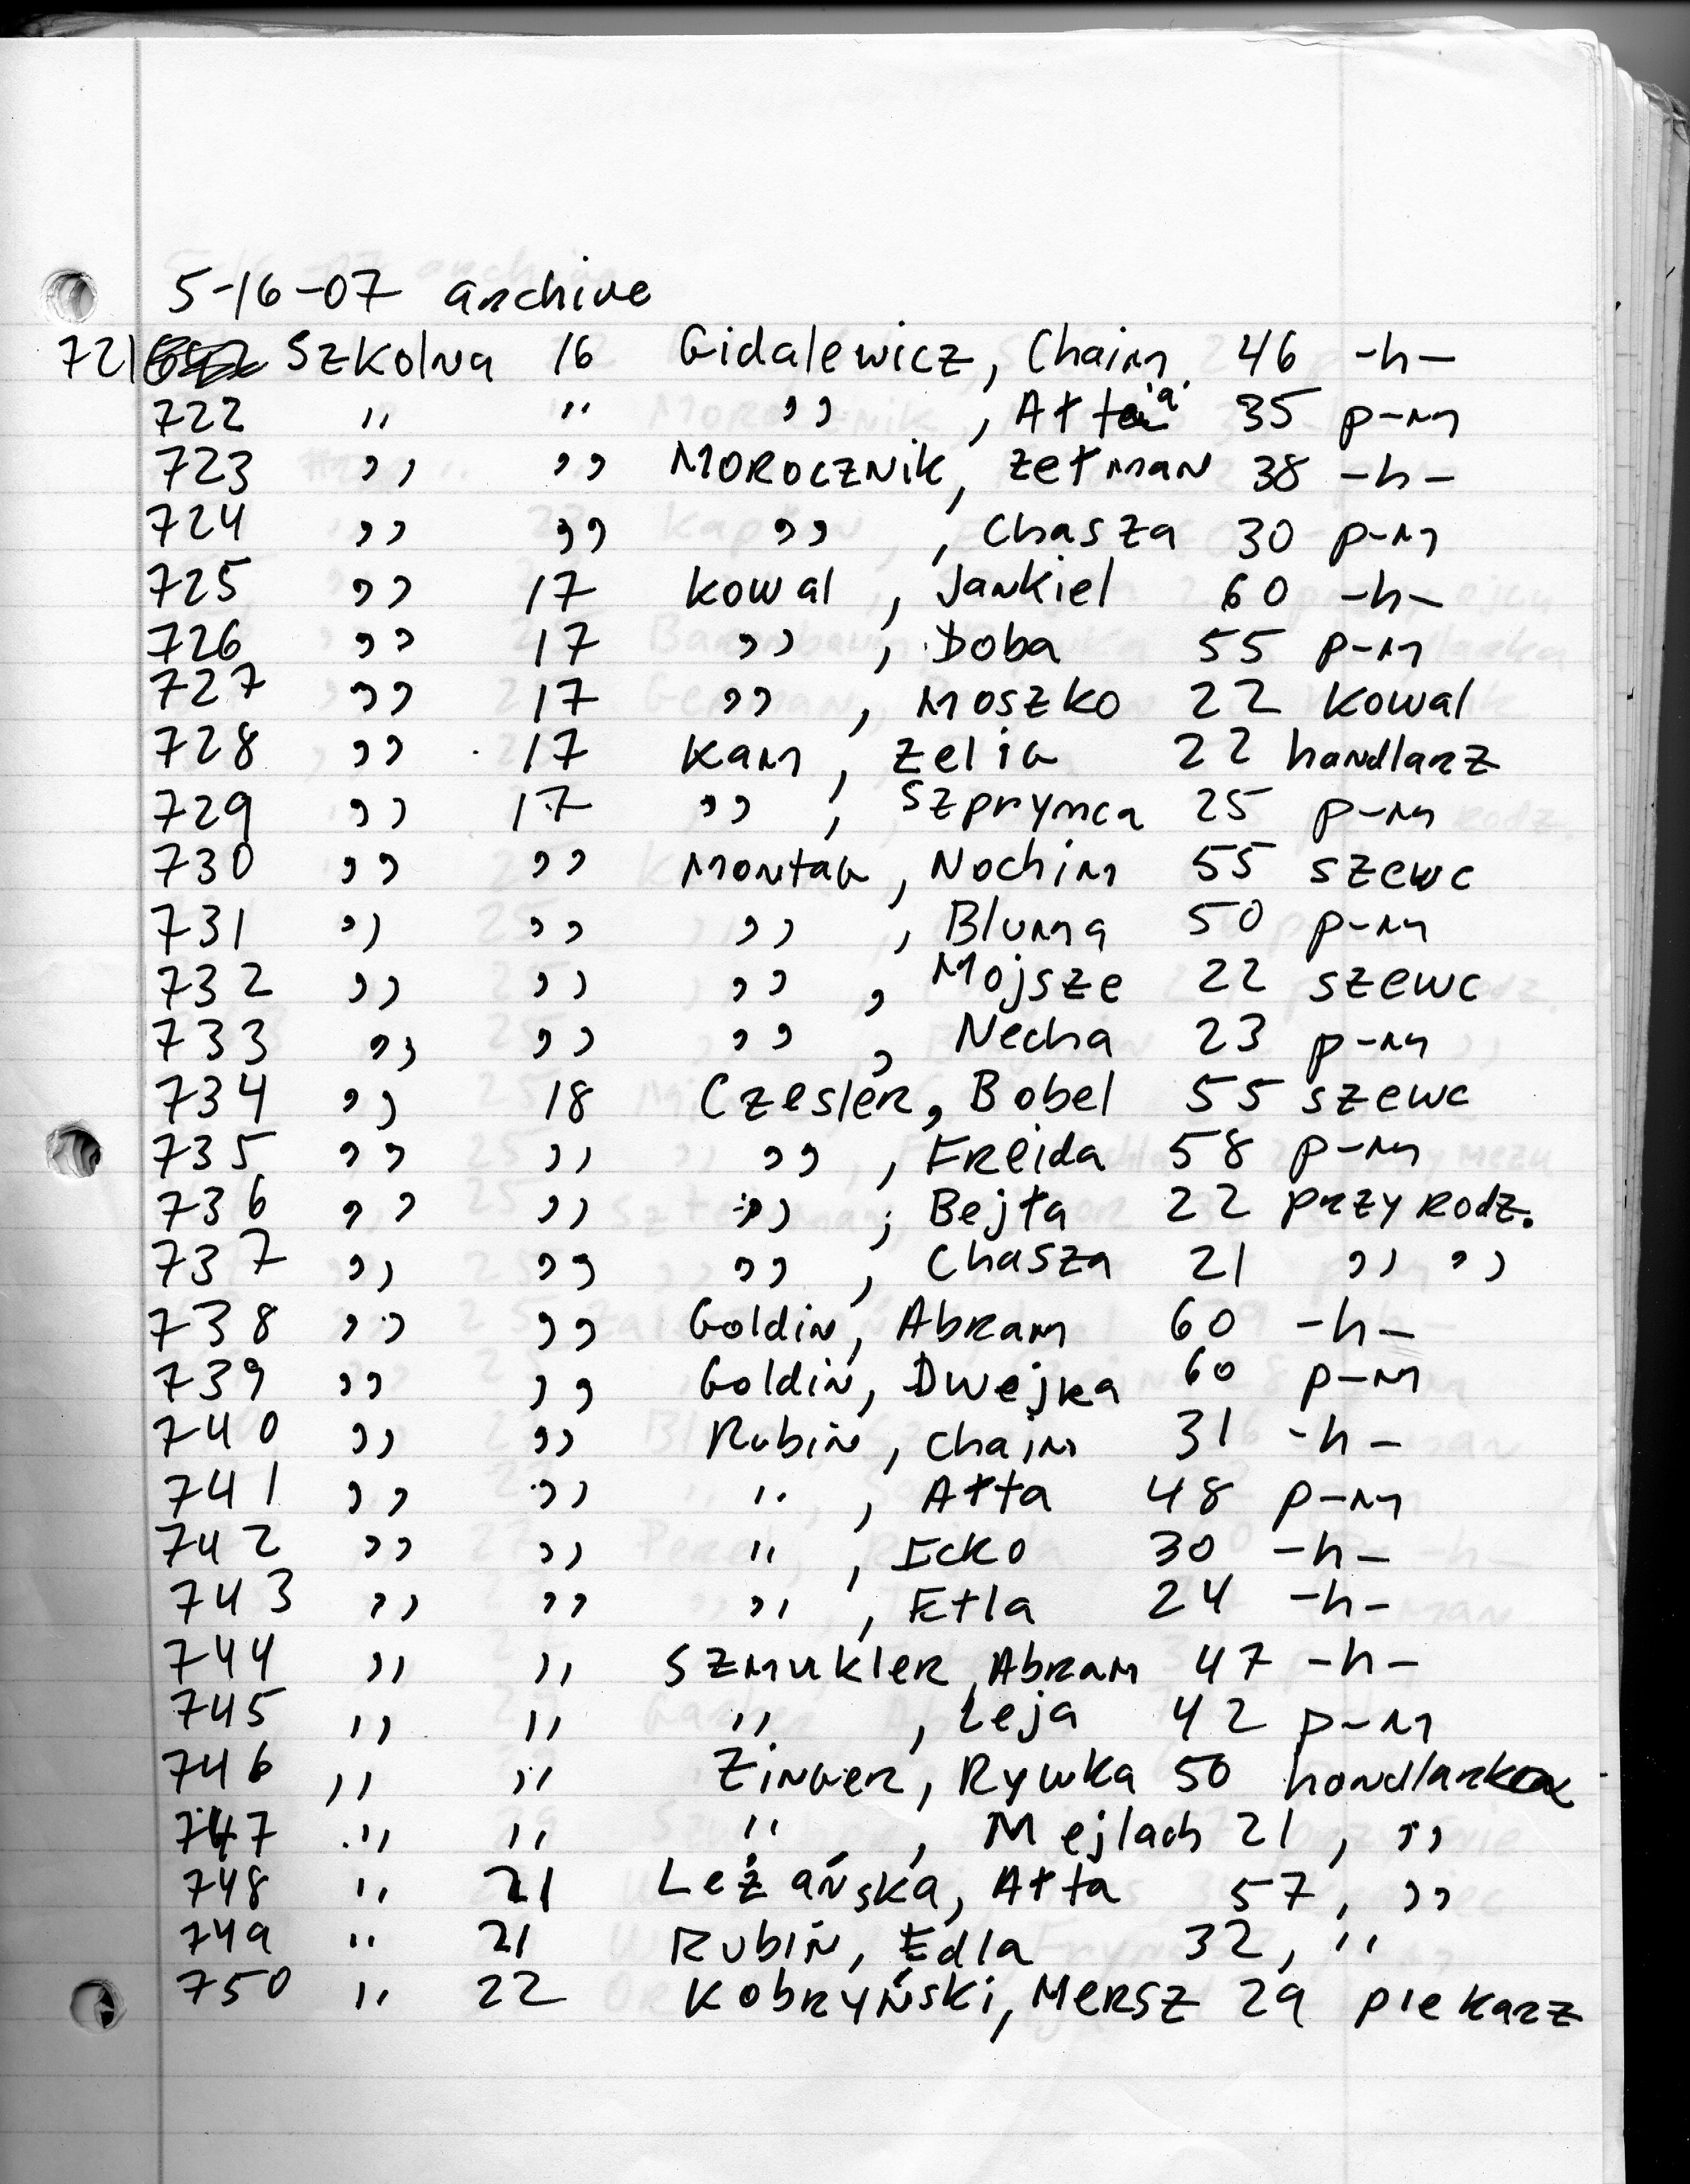 5-16-07 archive
721 Szkolna 16 Gidalewicz, Chaim 46 -h-
722 " " " , Atta "a" 35 p-m
723 " " Morocznik, Zełman 38 -h-
724 " " " , Chasza 30 p-m
725 " 17 Kowal, Jankiel 60 -h-
726 " 17 " , Doba 55 p-m
727 " 17 " , Moszko 22 kowal
728 " 17 Kam, Zelig 22 handlarz
729 " 17 " , Szprynca 25 p-m
730 " " Montag, Nochim 55 szewc
731 " " " , Bluma 50 p-m
732 " " " , Mojsze 22 szewc
733 " " " , Necha 23 p-m
734 " 18 Czesler, Bobel 55 szewc
735 " " " , Freida 58 p-m
736 " " " , Bejła 22 przy rodz.
737 " " " , Chasza 21 " "
738 " " Goldin, Abram 60 -h-
739 " " Goldin, Dwejka 60 p-m
740 " " Rubin, Chaim 31 -h-
741 " " " , Atta 48 p-m
742 " " " , Icko 30 -h-
743 " " " , Etla 24 -h-
744 " " Szmukler, Abram 47 -h-
745 " " " , Leja 42 p-m
746 " " Zinger, Rywka 50 handlarka
747 " " " , Mejlach 21, "
748 " 21 Leżańska, Atta 57, "
749 " 21 Rubin, Edla 32, "
750 " 22 Kobryński, Mersz 29 piekarz